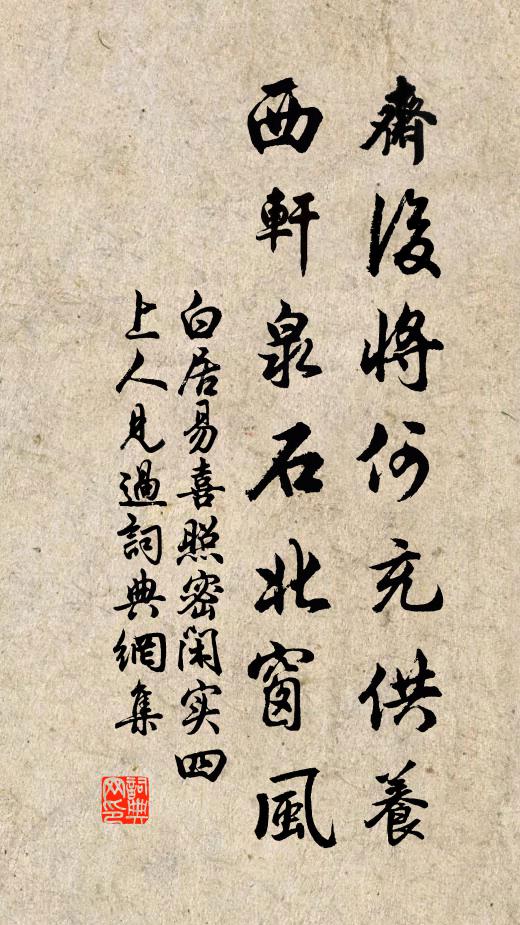 齋後將何充供養
西軒泉石北窗風
白居易喜照密閑实四
上人見過詞典網集
詞典
网印